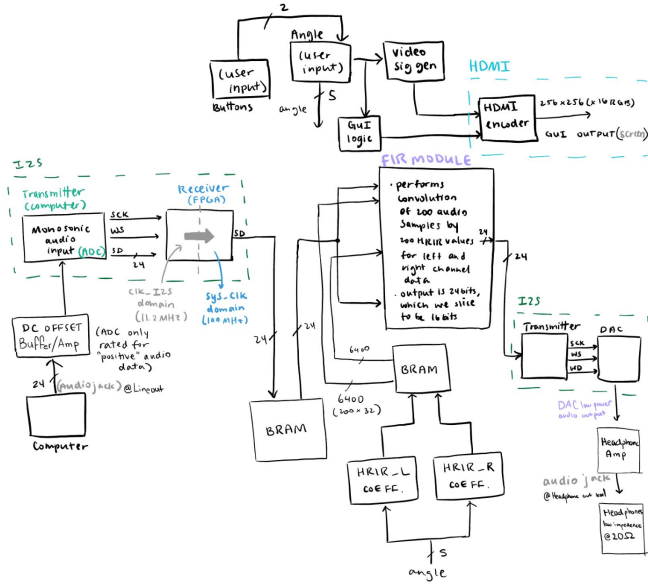 2
Angle
(user
input)
(user
input)
Buttons
5
angle
video
sig gen
GUI
logic
HDMI
HDMI
encoder
256x256(x16RGB)
GUI OUTPUT (screen)
I2S
Transmitter
(computer)
Monosonic
audio
input (ADC)
SCK
WS
SD
24
Receiver
(FPGA)
SD
clk_I2S
domain
(11.2MHz)
sys_clk
domain
(100MHz)
DC OFFSET
Buffer/Amp
(ADC only
rated for
"positive" audio
data)
24
(Audiojack) @Lineout
Computer
24
BRAM
24
FIR MODULE
• performs
convolution
of 200 audio
samples by
200 HRIR values
for left and
right channel
data
• output is 24bits,
which we slice
to be 16bits
24
24
6400
6400
(200 x 32)
BRAM
HRIR_L
COEFF.
HRIR_R
COEFF.
5
angle
I2S
Transmitter
SCK
WS
WD
DAC
DAC low power
audio output
Headphone
Amp
audio jack
Headphones
low impedence
@20Ω